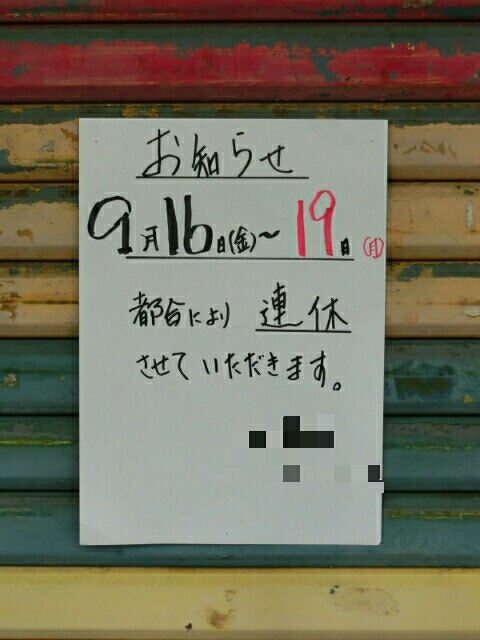 お知らせ
9月16日(金)~19日(月)
都合により 連休
させていただきます。